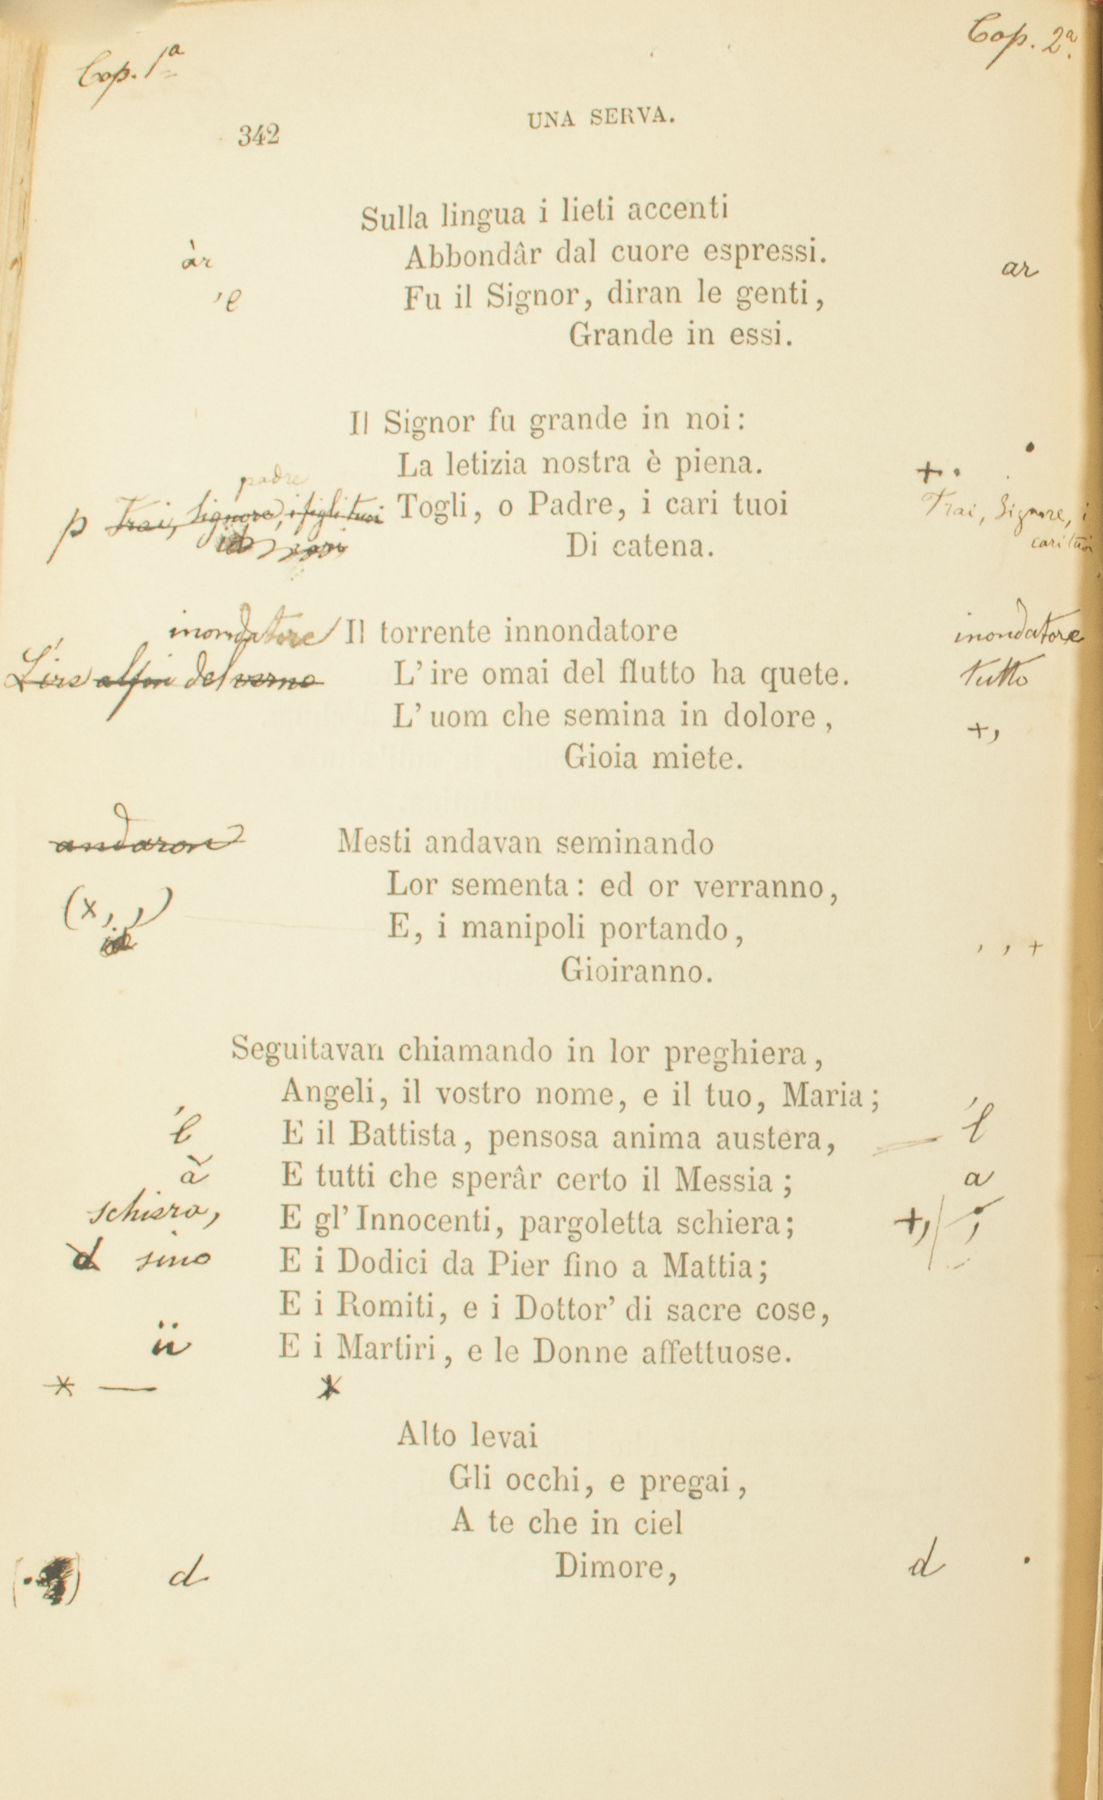 Cop. 1ª
Cop. 2ª
342
UNA SERVA.
Sulla lingua i lieti accenti
àr Abbondâr dal cuore espressi. ar
'e Fu il Signor, diran le genti,
Grande in essi.
Il Signor fu grande in noi:
La letizia nostra è piena. +.
padre
p Trai, Signore, i figli tuoi Togli, o Padre, i cari tuoi Trai, Signore, i
cari Di catena. cari tuoi
inondatore Il torrente innondatore inondatore
L'ire alfin del verno L' ire omai del flutto ha quete. tutto
L' uom che semina in dolore, +,
Gioia miete.
andaron Mesti andavan seminando
Lor sementa: ed or verranno,
(x, ,) E, i manipoli portando, , , +
Gioiranno.
Seguitavan chiamando in lor preghiera,
Angeli, il vostro nome, e il tuo, Maria;
E il Battista, pensosa anima austera,
à E tutti che sperâr certo il Messia; a
schiera, E gl' Innocenti, pargoletta schiera; +,/ ;
d sino E i Dodici da Pier fino a Mattia;
E i Romiti, e i Dottor' di sacre cose,
E i Martiri, e le Donne affettuose.
* —
Alto levai
Gli occhi, e pregai,
A te che in ciel
d Dimore, d .